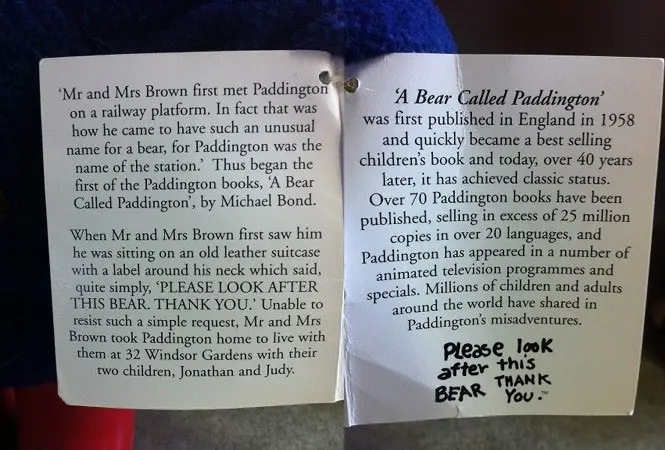 ‘Mr and Mrs Brown first met Paddington
on a railway platform. In fact that was
how he came to have such an unusual
name for a bear, for Paddington was the
name of the station.’ Thus began the
first of the Paddington books, ‘A Bear
Called Paddington’, by Michael Bond.
When Mr and Mrs Brown first saw him
he was sitting on an old leather suitcase
with a label around his neck which said,
quite simply, ‘PLEASE LOOK AFTER
THIS BEAR. THANK YOU.’ Unable to
resist such a simple request, Mr and Mrs
Brown took Paddington home to live with
them at 32 Windsor Gardens with their
two children, Jonathan and Judy.
‘A Bear Called Paddington’
was first published in England in 1958
and quickly became a best selling
children’s book and today, over 40 years
later, it has achieved classic status.
Over 70 Paddington books have been
published, selling in excess of 25 million
copies in over 20 languages, and
Paddington has appeared in a number of
animated television programmes and
specials. Millions of children and adults
around the world have shared in
Paddington’s misadventures.
Please look
after this
BEAR THANK
YOU.™